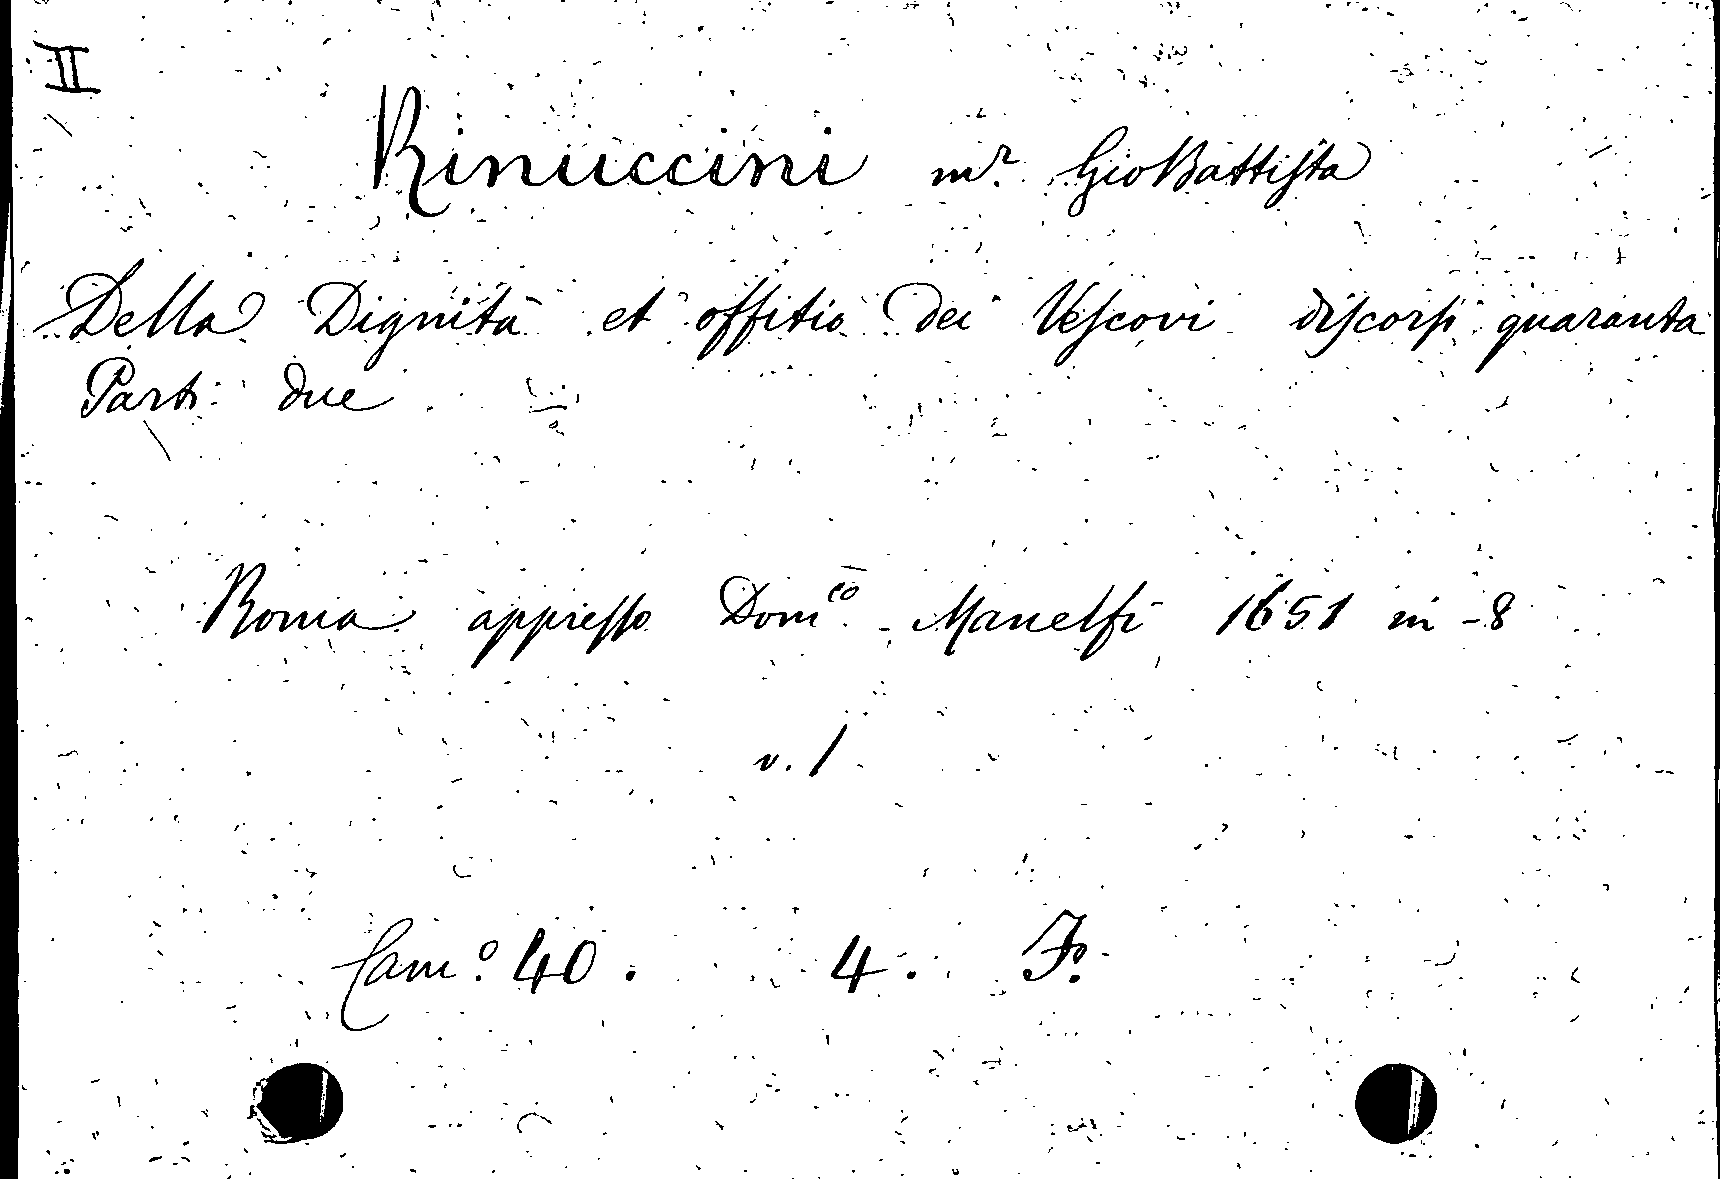 II
Rinuccini mr. GioBattista
Della Dignità et offitio dei Vescovi discorsi quaranta
Parti due
Roma appresso Domco Manelfi 1651 in -8
v. 1
Cam.o 40. 4.